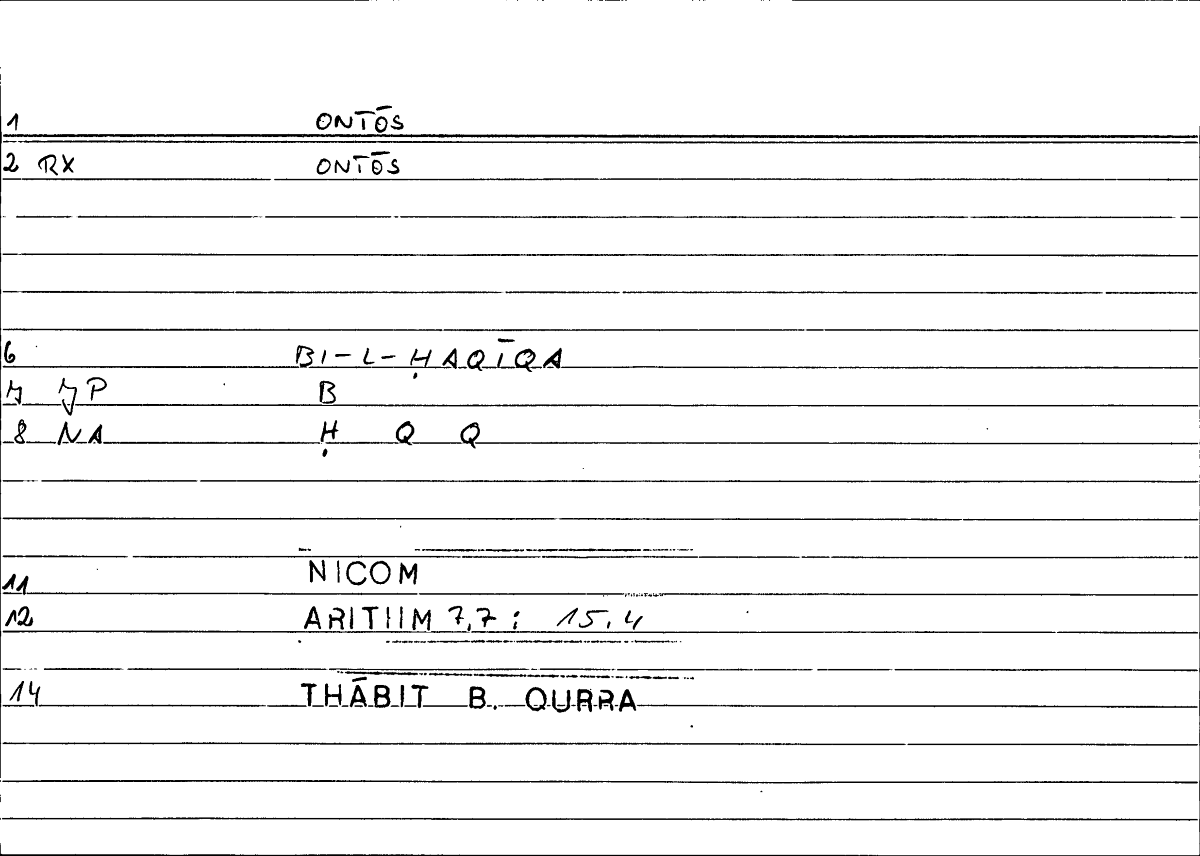 1 ONTŌS
2 RX ONTŌS
6 BI-L-ḤAQĪQA
7 JP B
8 NA Ḥ Q Q
11 NICOM
12 ARITHM 7,7 ; 15.4
14 THĀBIT B. QURRA